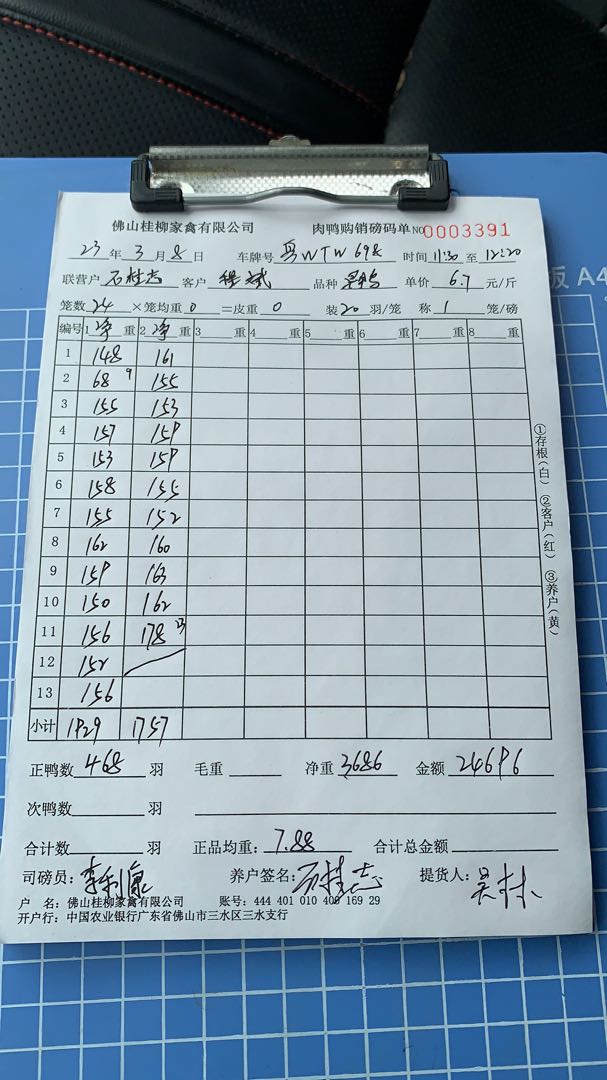 佛山桂柳家禽有限公司 肉鸭购销磅码单 NO 0003391
23 年 3 月 8 日 车牌号 粤WTW698 时间 11:30 至 12:20
联营户 石桂志 客户 程斌 品种 单价 6.7 元/斤
笼数 24 ×笼均重 0 =皮重 0 装 20 羽/笼 称 1 笼/磅
编号 1 净 重 2 净 重 3 重 4 重 5 重 6 重 7 重 8 重
1 148 161
2 68 9 155
3 155 153
4 157 159
5 153 159
6 158 155
7 155 152
8 162 160
9 159 163
10 150 162
11 156 178 13
12 152
13 156
小计 1929 1757
正鸭数 468 羽 毛重 净重 3686 金额 24696
次鸭数 羽
合计数 羽 正品均重: 7.88 合计总金额
司磅员: 李利康 养户签名: 石桂志 提货人: 吴林
户 名: 佛山桂柳家禽有限公司 账号: 444 401 010 400 169 29
开户行: 中国农业银行广东省佛山市三水区三水支行
①存根(白) ②客户(红) ③养户(黄)
版 A4